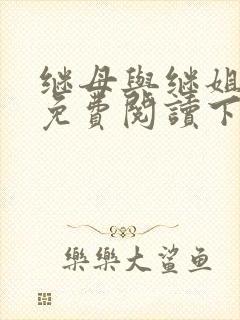 继母與继姐
免費閱讀下
樂樂大鲨鱼